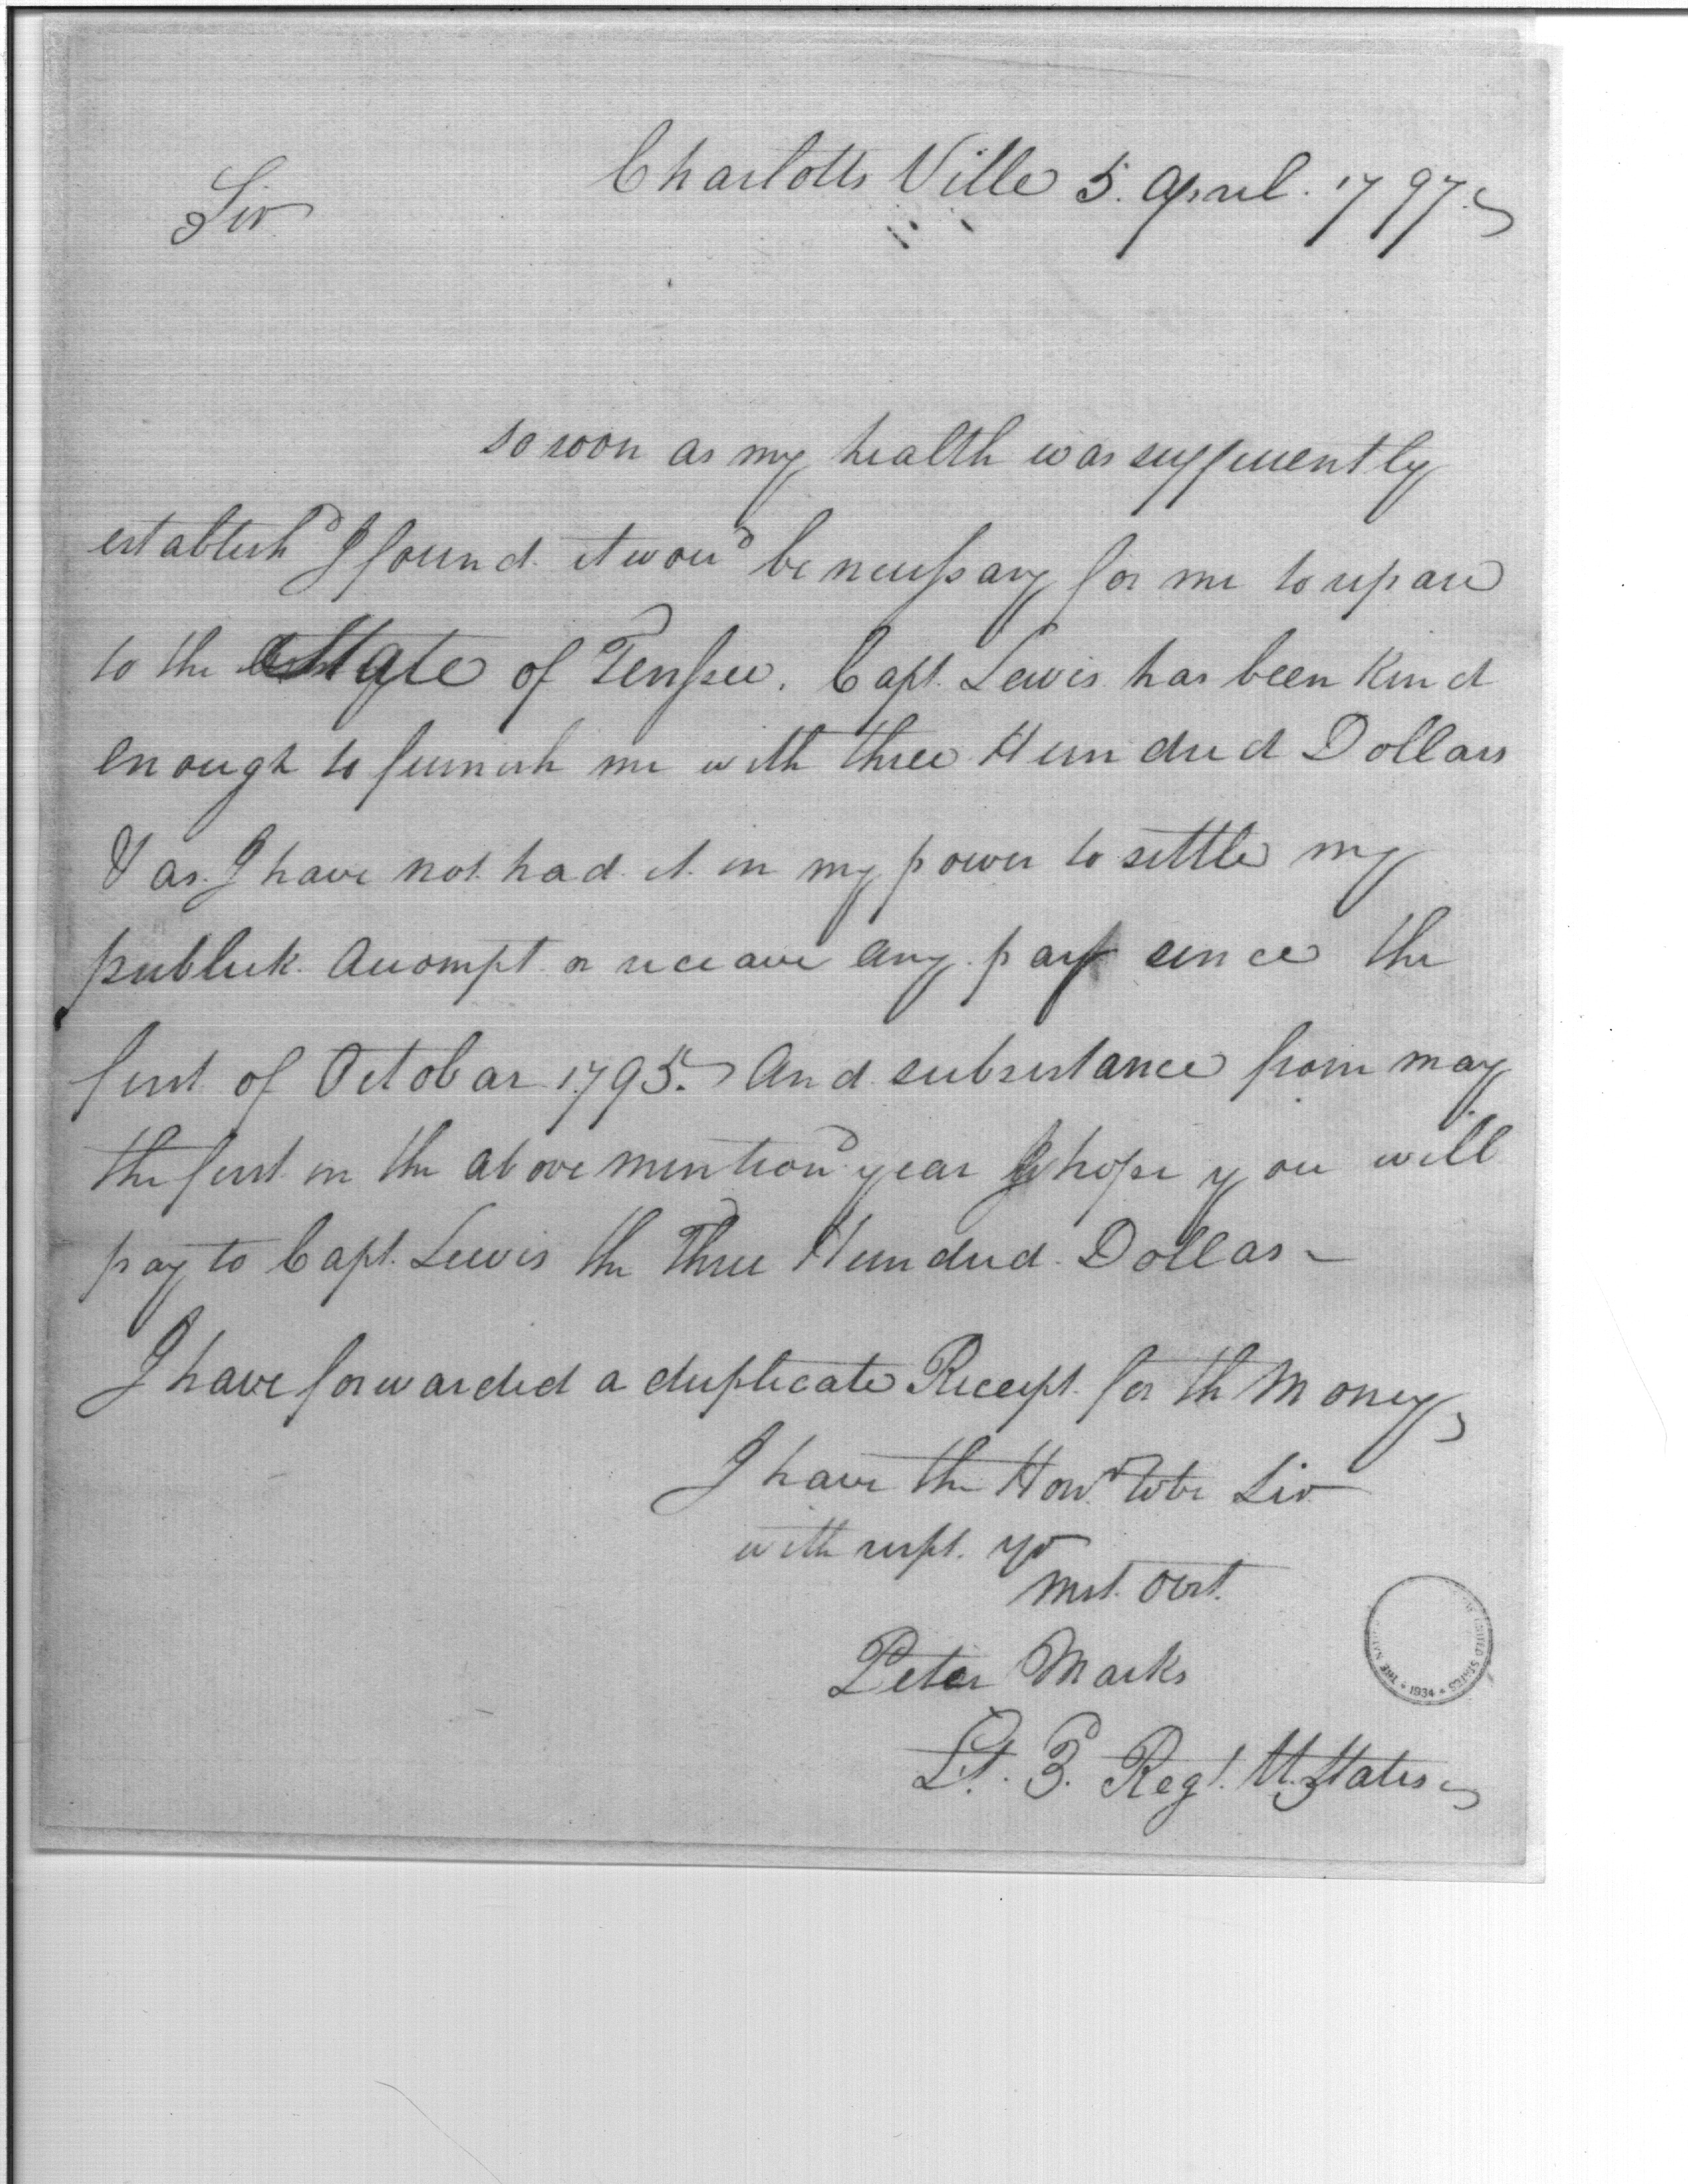 Charlotts Ville 5. April. 1797.
Sir
so soon as my health was suffuently
establish'd I found it wou'd be necessary for me to repare
to the State of Tenssee. Capt. Lewis has been Kind
enough to furnish me with three Hundred Dollars
& as I have not had it in my power to settle my
publick Accompt or receave any pay since the
first of Octobar 1795. And subsistance from may
the first in the above mention'd year I hope you will
pay to Capt. Lewis the Three Hundred Dollas
I have forwarded a duplicate Receipt for th Money
I have the Honr. to be Sir
with respt. yr
Mst. Obt.
Peter Marks
Lt. 3. Regt. U. States
THE UNITED STATES * 1934 *